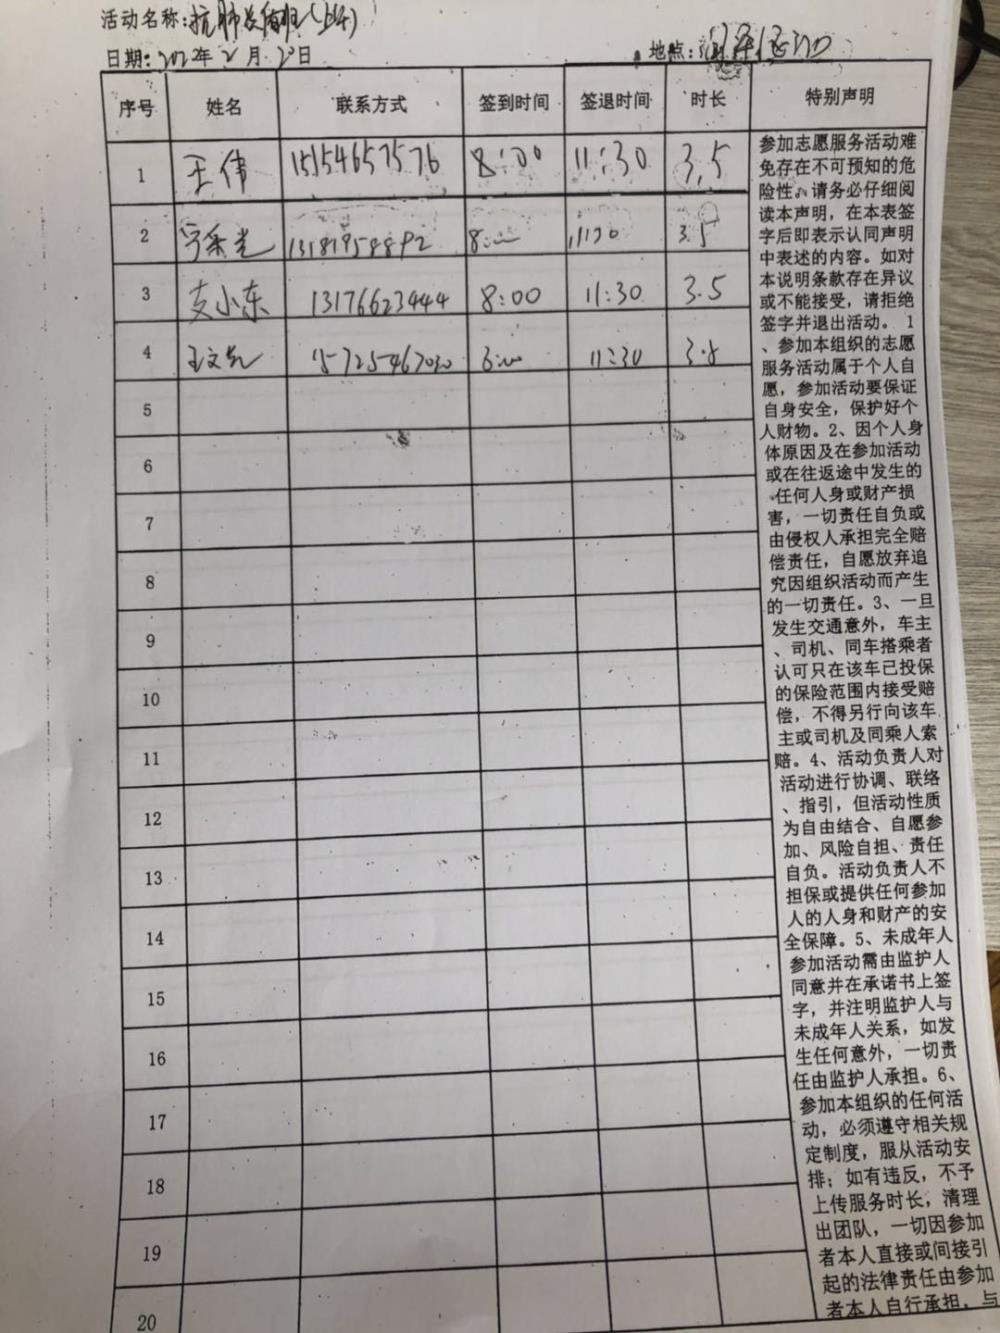 活动名称:
日期: 年2月 日 地点:
序号 姓名 联系方式 签到时间 签退时间 时长 特别声明
1 王伟 15154657576 8:00 11:30 3.5
2 3.5
3 支小东 13176623444 8:00 11:30 3.5
4 11:30
5
6
7
8
9
10
11
12
13
14
15
16
17
18
19
20
参加志愿服务活动难
免存在不可预知的危
险性。请务必仔细阅
读本声明，在本表签
字后即表示认同声明
中表述的内容。如对
本说明条款存在异议
或不能接受，请拒绝
签字并退出活动。1
、参加本组织的志愿
服务活动属于个人自
愿，参加活动要保证
自身安全，保护好个
人财物。2、因个人身
体原因及在参加活动
或在往返途中发生的
任何人身或财产损
害，一切责任自负或
由侵权人承担完全赔
偿责任，自愿放弃追
究因组织活动而产生
的一切责任。3、一旦
发生交通意外，车主
、司机、同车搭乘者
认可只在该车已投保
的保险范围内接受赔
偿，不得另行向该车
主或司机及同乘人索
赔。4、活动负责人对
活动进行协调、联络
、指引，但活动性质
为自由结合、自愿参
加、风险自担、责任
自负。活动负责人不
担保或提供任何参加
人的人身和财产的安
全保障。5、未成年人
参加活动需由监护人
同意并在承诺书上签
字，并注明监护人与
未成年人关系，如发
生任何意外，一切责
任由监护人承担。6、
参加本组织的任何活
动，必须遵守相关规
定制度，服从活动安
排；如有违反，不予
上传服务时长，清理
出团队，一切因参加
者本人直接或间接引
起的法律责任由参加
者本人自行承担，与